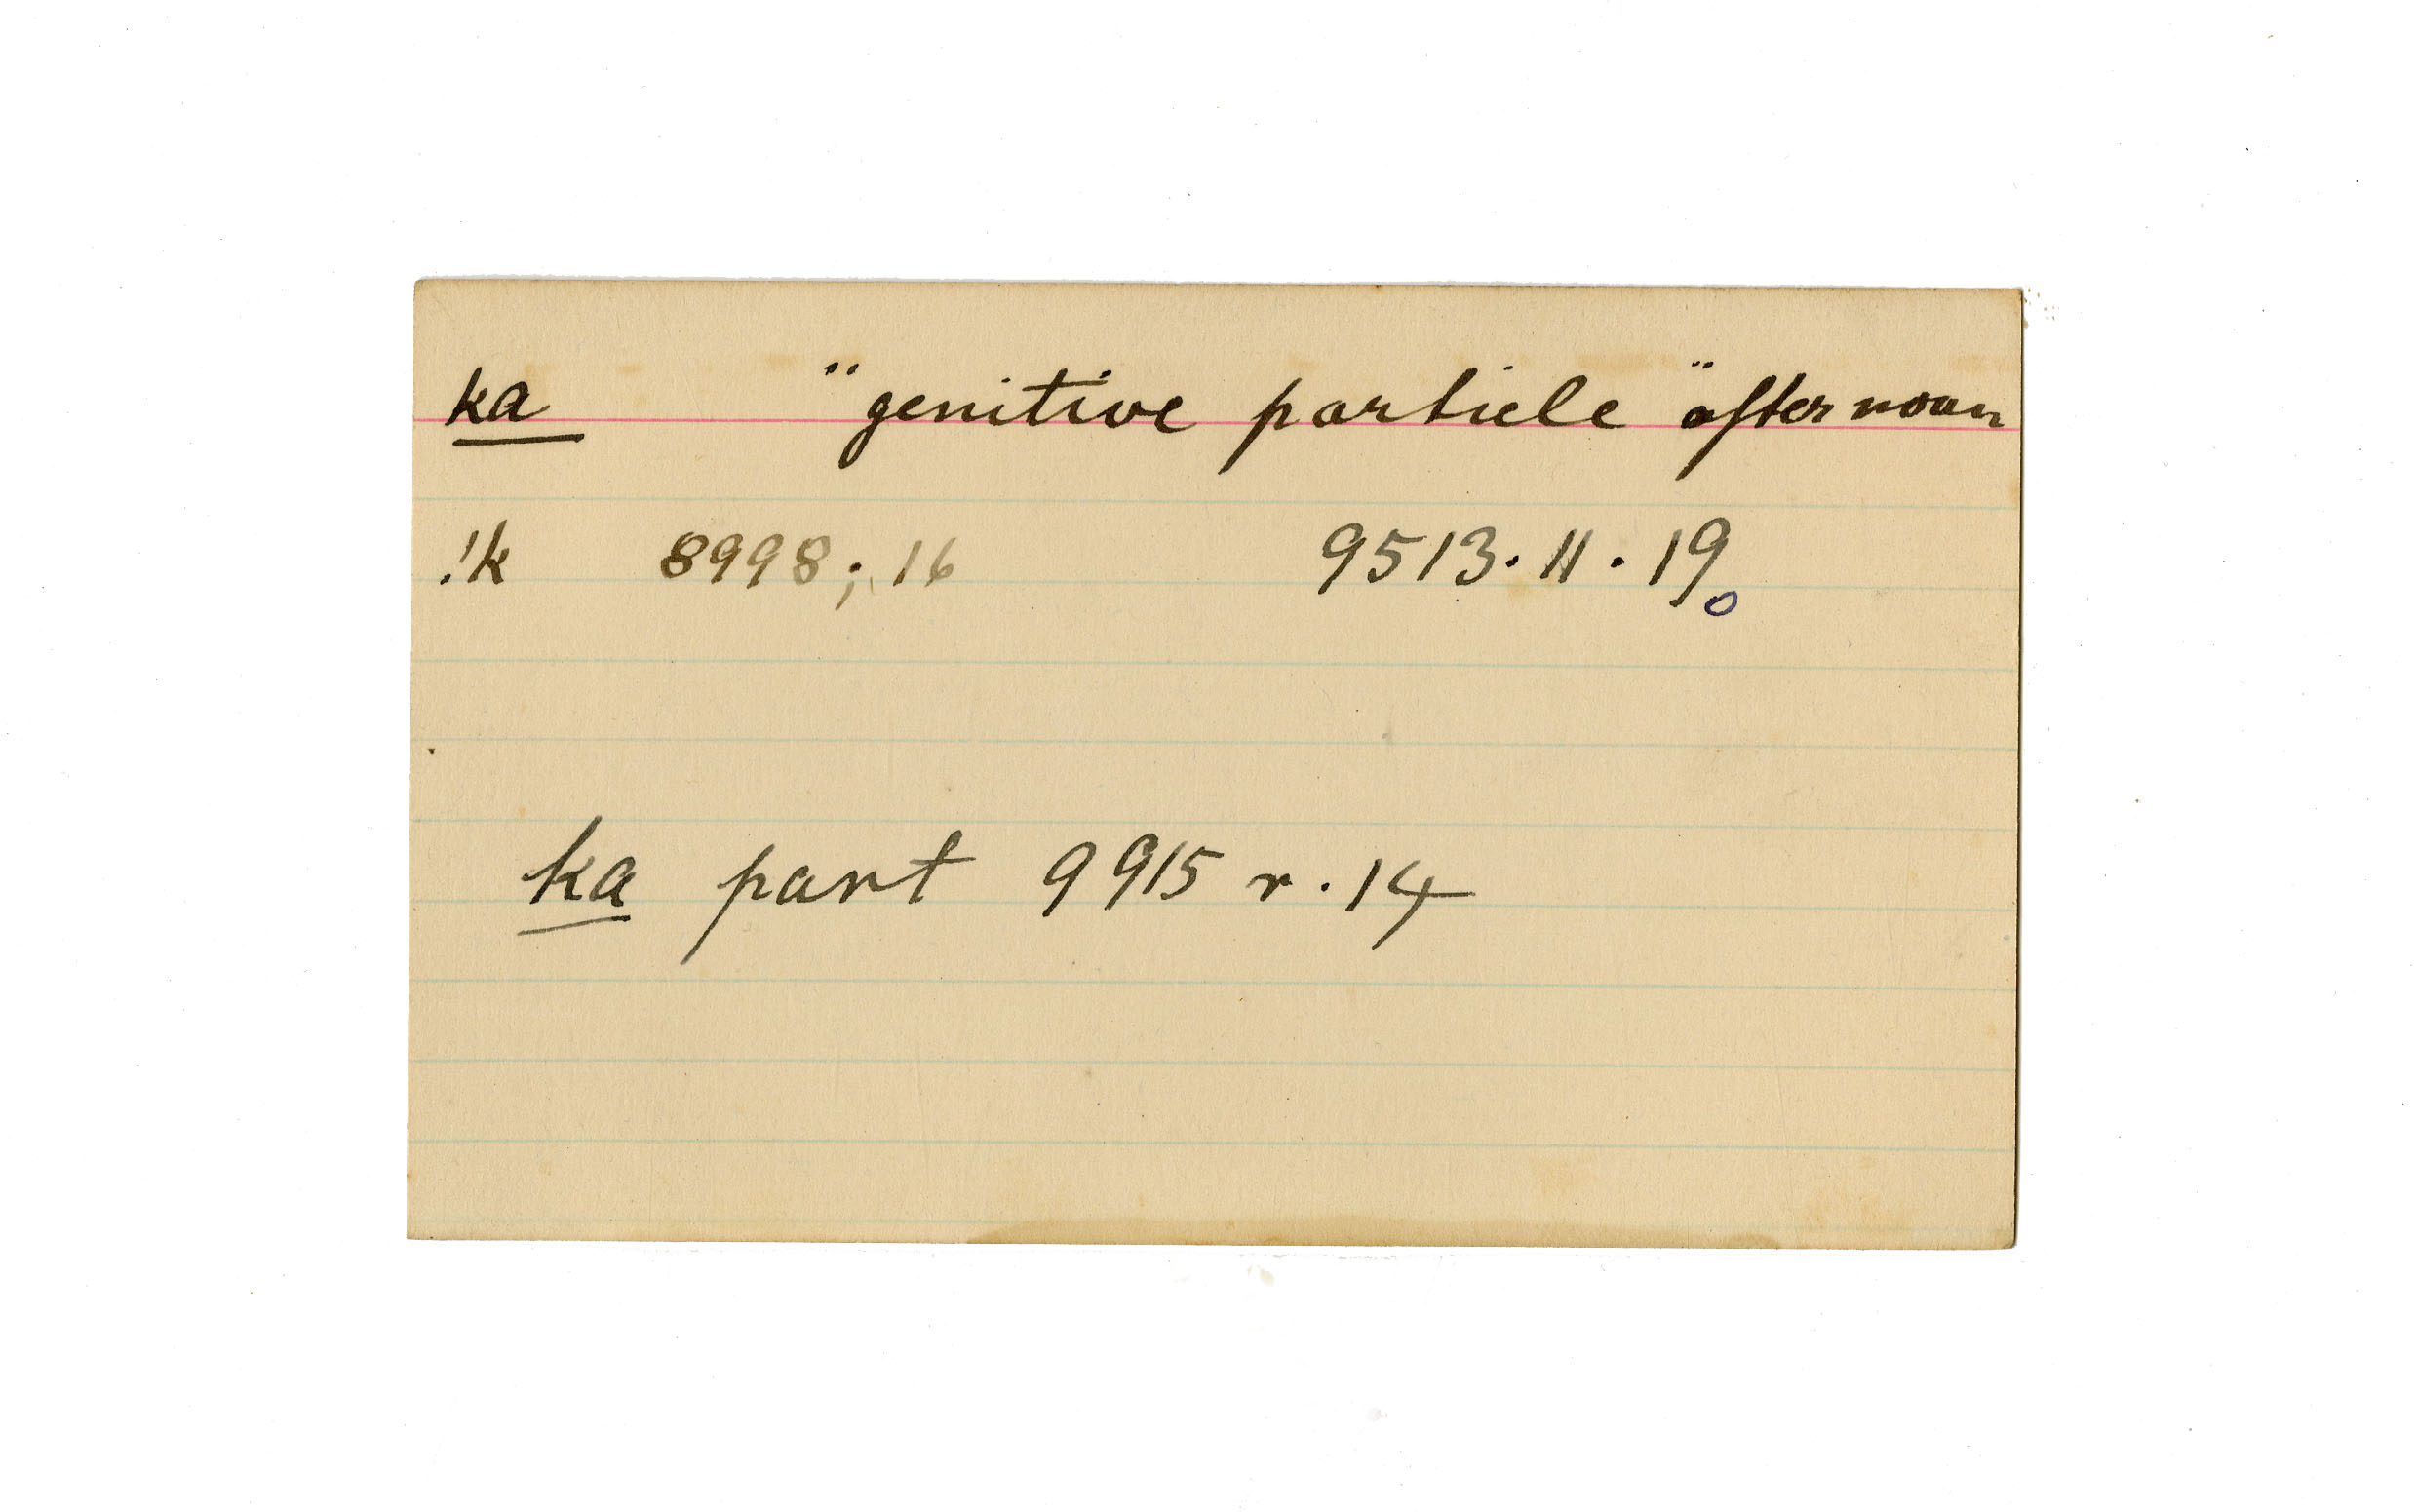 ka "genitive particle" after noun
!k 8998; 16 9513. II. 19
ka part 9915 r. 14